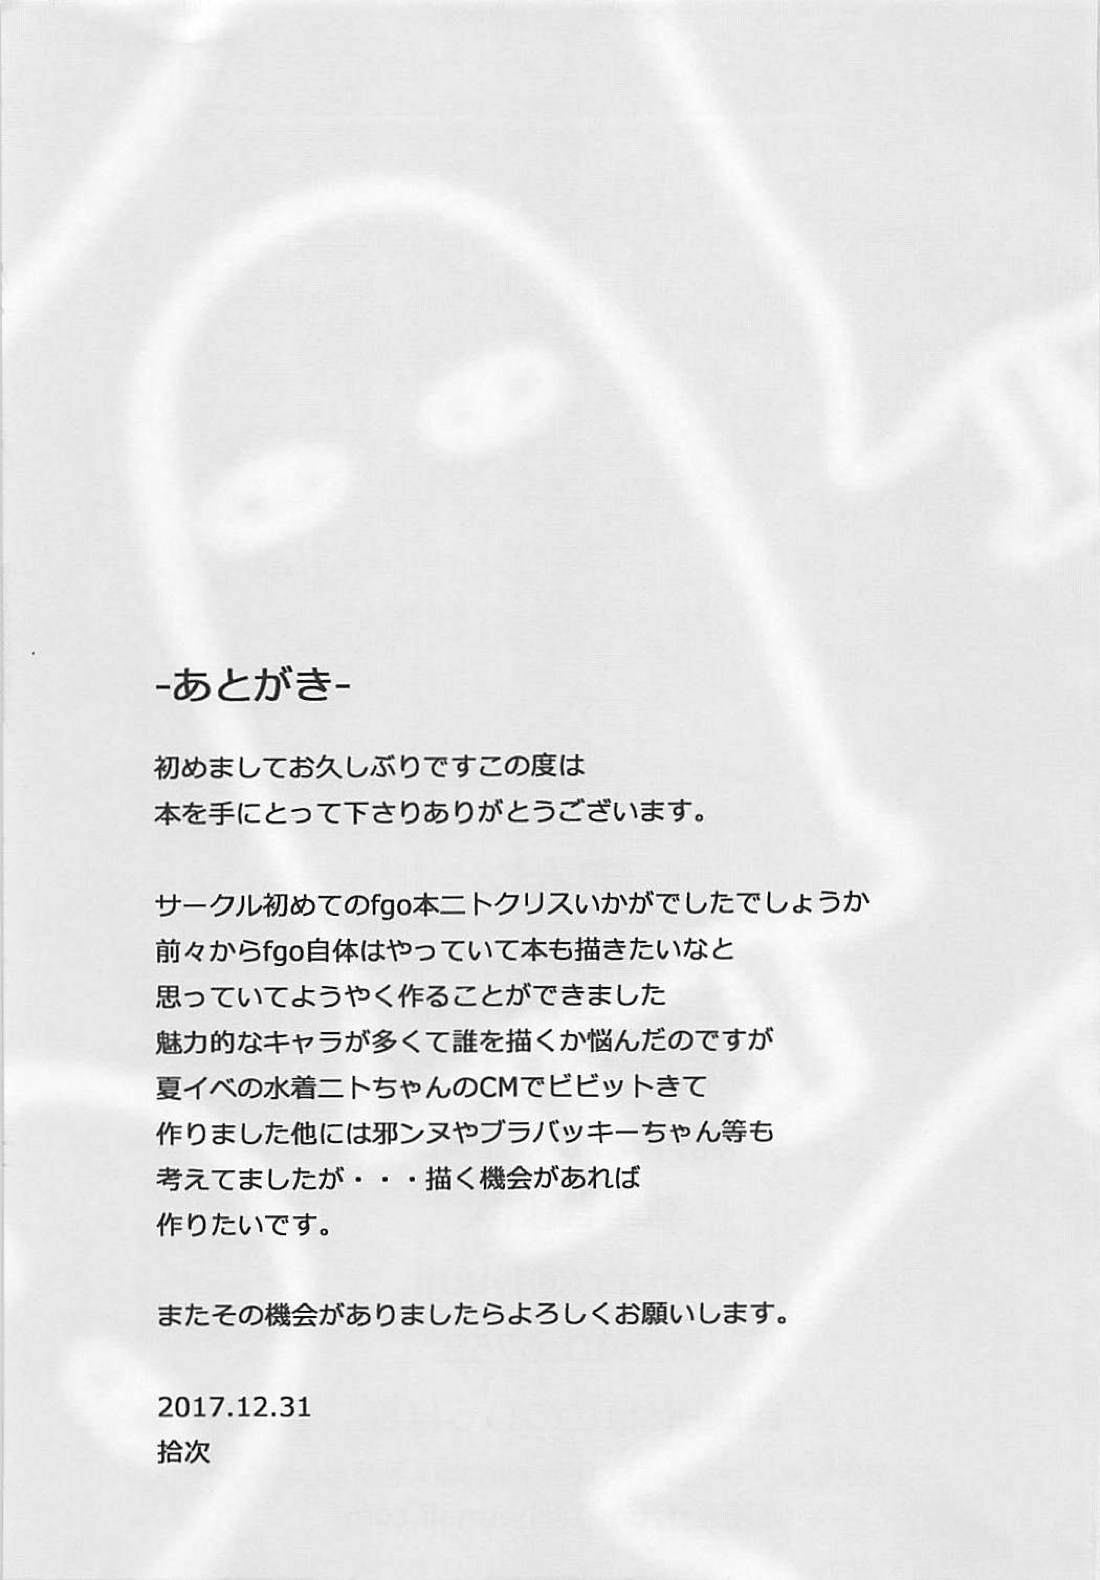 -あとがき-
初めましてお久しぶりですこの度は
本を手にとって下さりありがとうございます。
サークル初めてのfgo本ニトクリスいかがでしたでしょうか
前々からfgo自体はやっていて本も描きたいなと
思っていてようやく作ることができました
魅力的なキャラが多くて誰を描くか悩んだのですが
夏イベの水着ニトちゃんのCMでビビットきて
作りました他には邪ンヌやブラバッキーちゃん等も
考えてましたが・・・描く機会があれば
作りたいです。
またその機会がありましたらよろしくお願いします。
2017.12.31
拾次